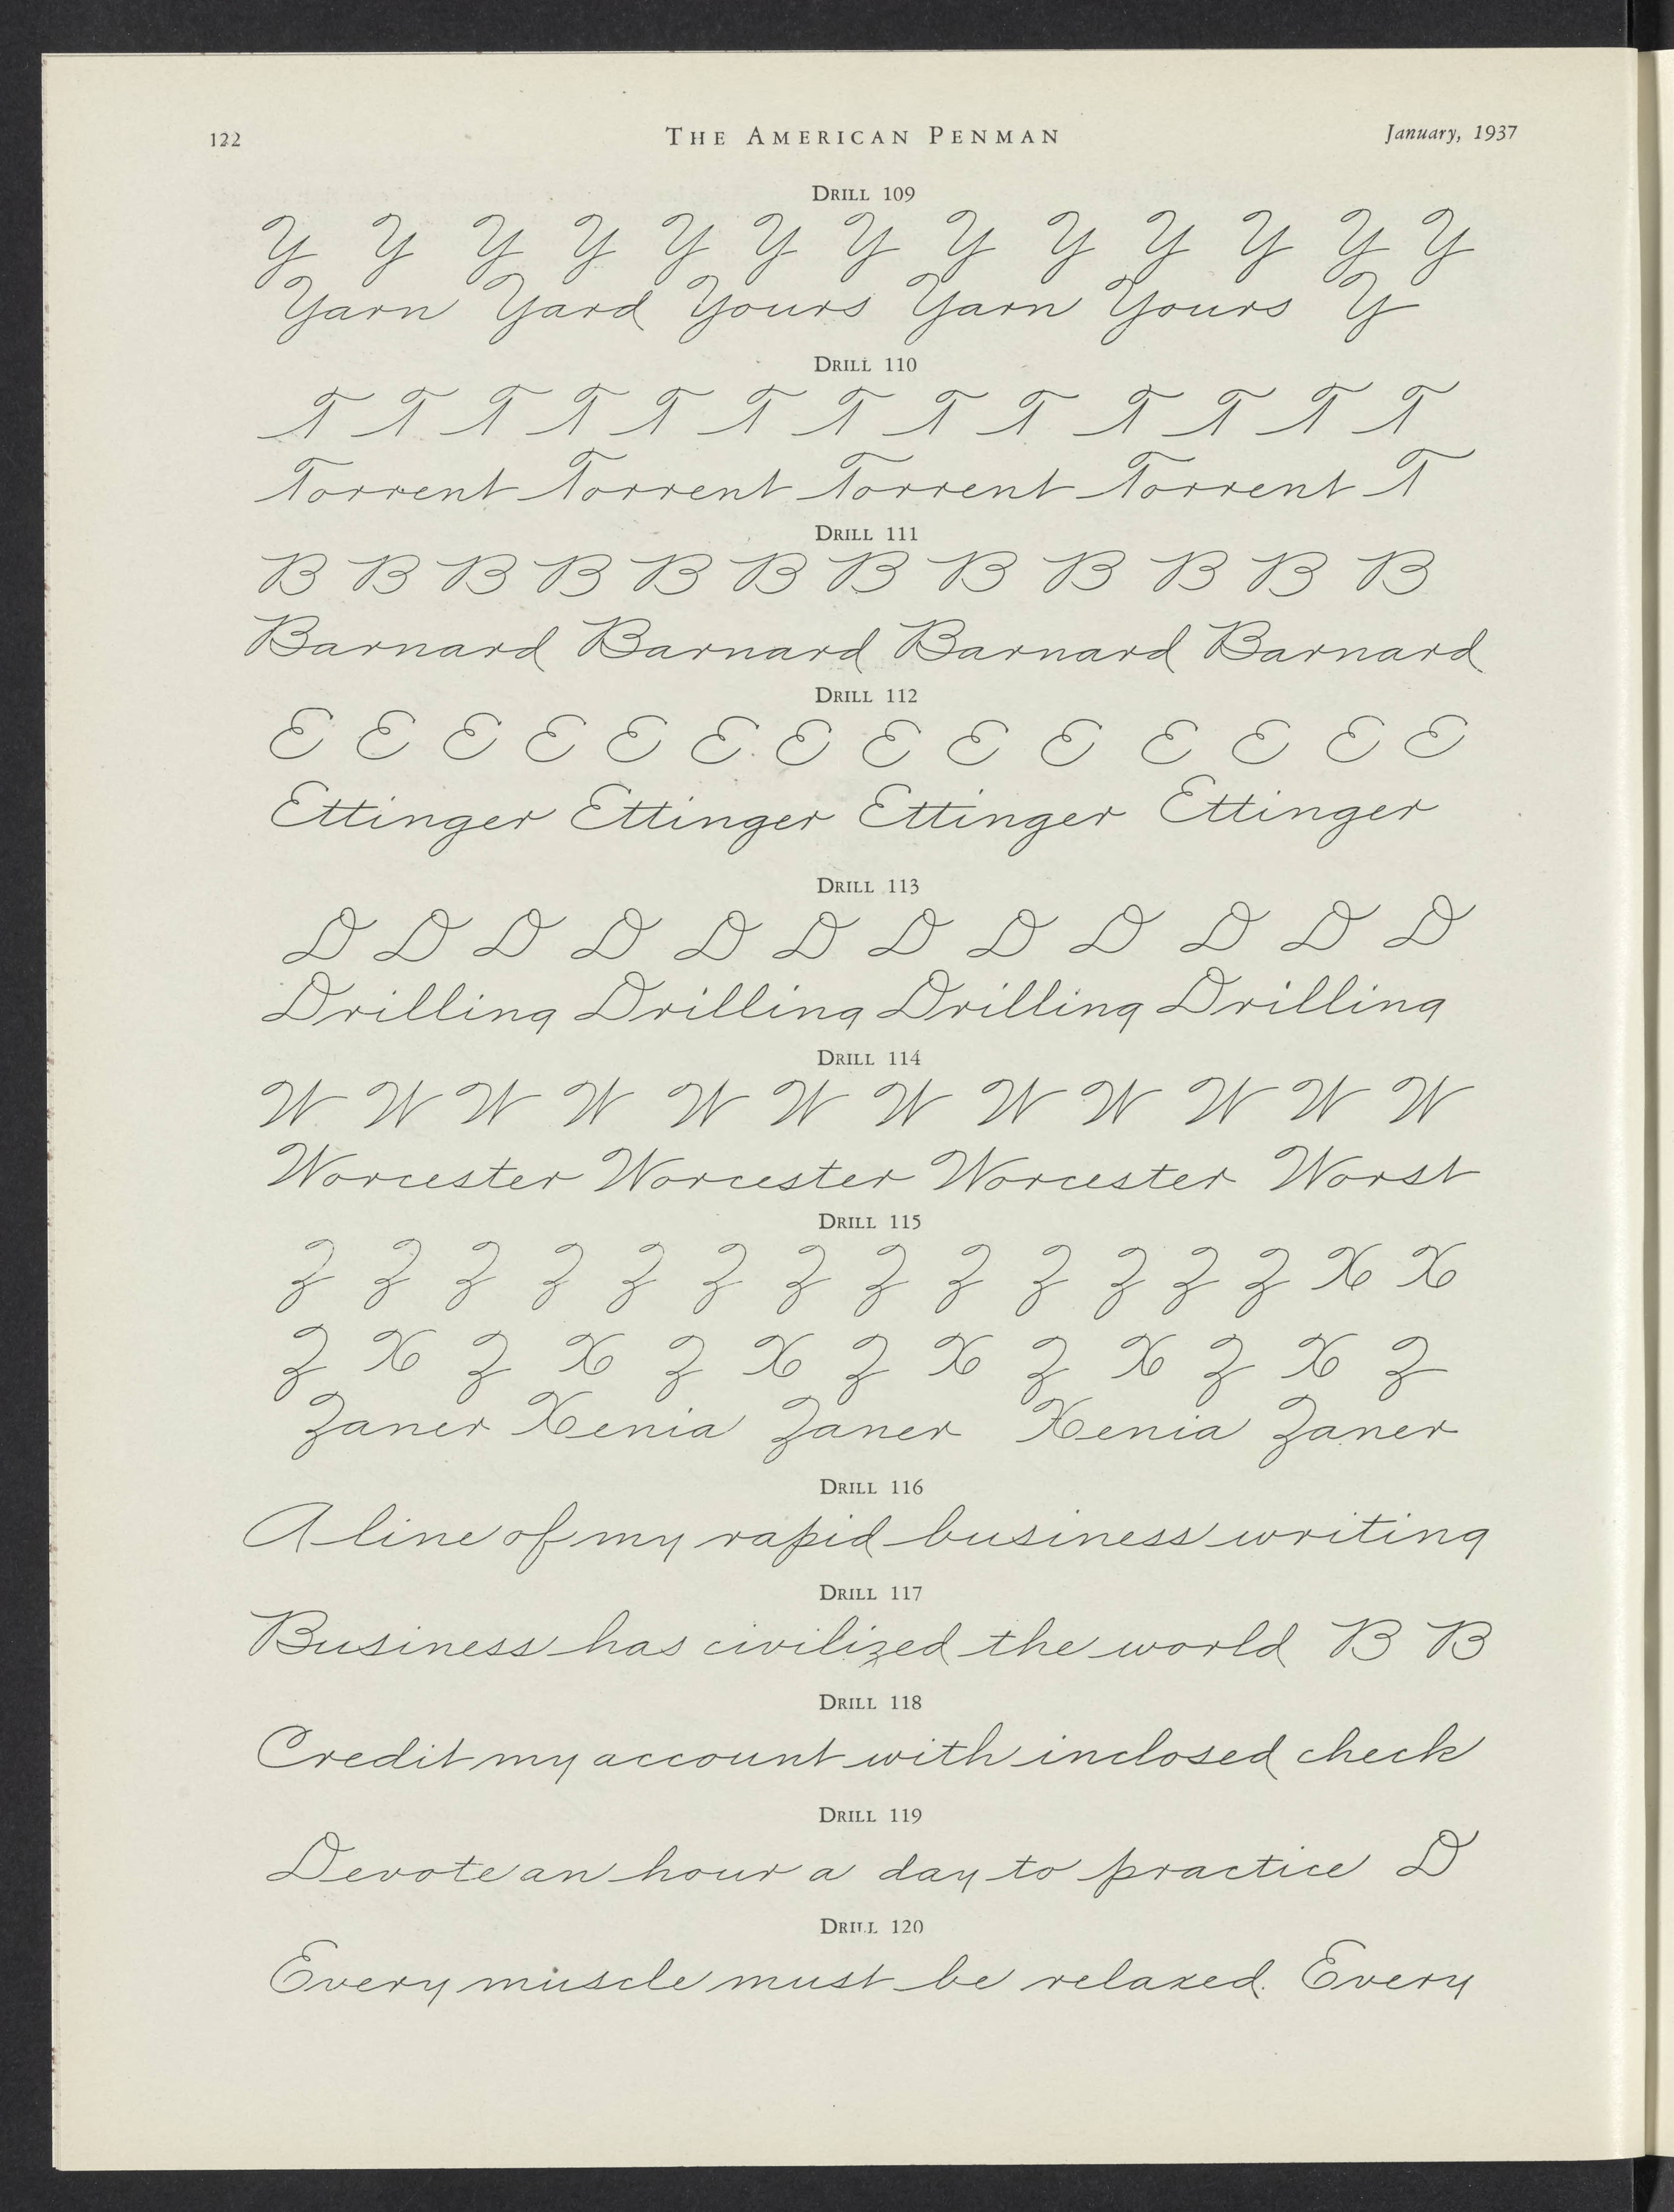 122 THE AMERICAN PENMAN January, 1937
DRILL 109
Y Y Y Y Y Y Y Y Y Y Y Y Y
Yarn Yard Yours Yarn Yours Y
DRILL 110
T T T T T T T T T T T T T
Torrent Torrent Torrent Torrent T
DRILL 111
B B B B B B B B B B B B
Barnard Barnard Barnard Barnard
DRILL 112
E E E E E E E E E E E E E E
Ettinger Ettinger Ettinger Ettinger
DRILL 113
D D D D D D D D D D D D
Drilling Drilling Drilling Drilling
DRILL 114
W W W W W W W W W W W W
Worcester Worcester Worcester Worst
DRILL 115
Z Z Z Z Z Z Z Z Z Z Z Z Z X X
Z X Z X Z X Z X Z X Z X Z
Zaner Xenia Zaner Xenia Zaner
DRILL 116
A line of my rapid business writing
DRILL 117
Business has civilized the world B B
DRILL 118
Credit my account with inclosed check
DRILL 119
Devote an hour a day to practice D
DRILL 120
Every muscle must be relaxed. Every